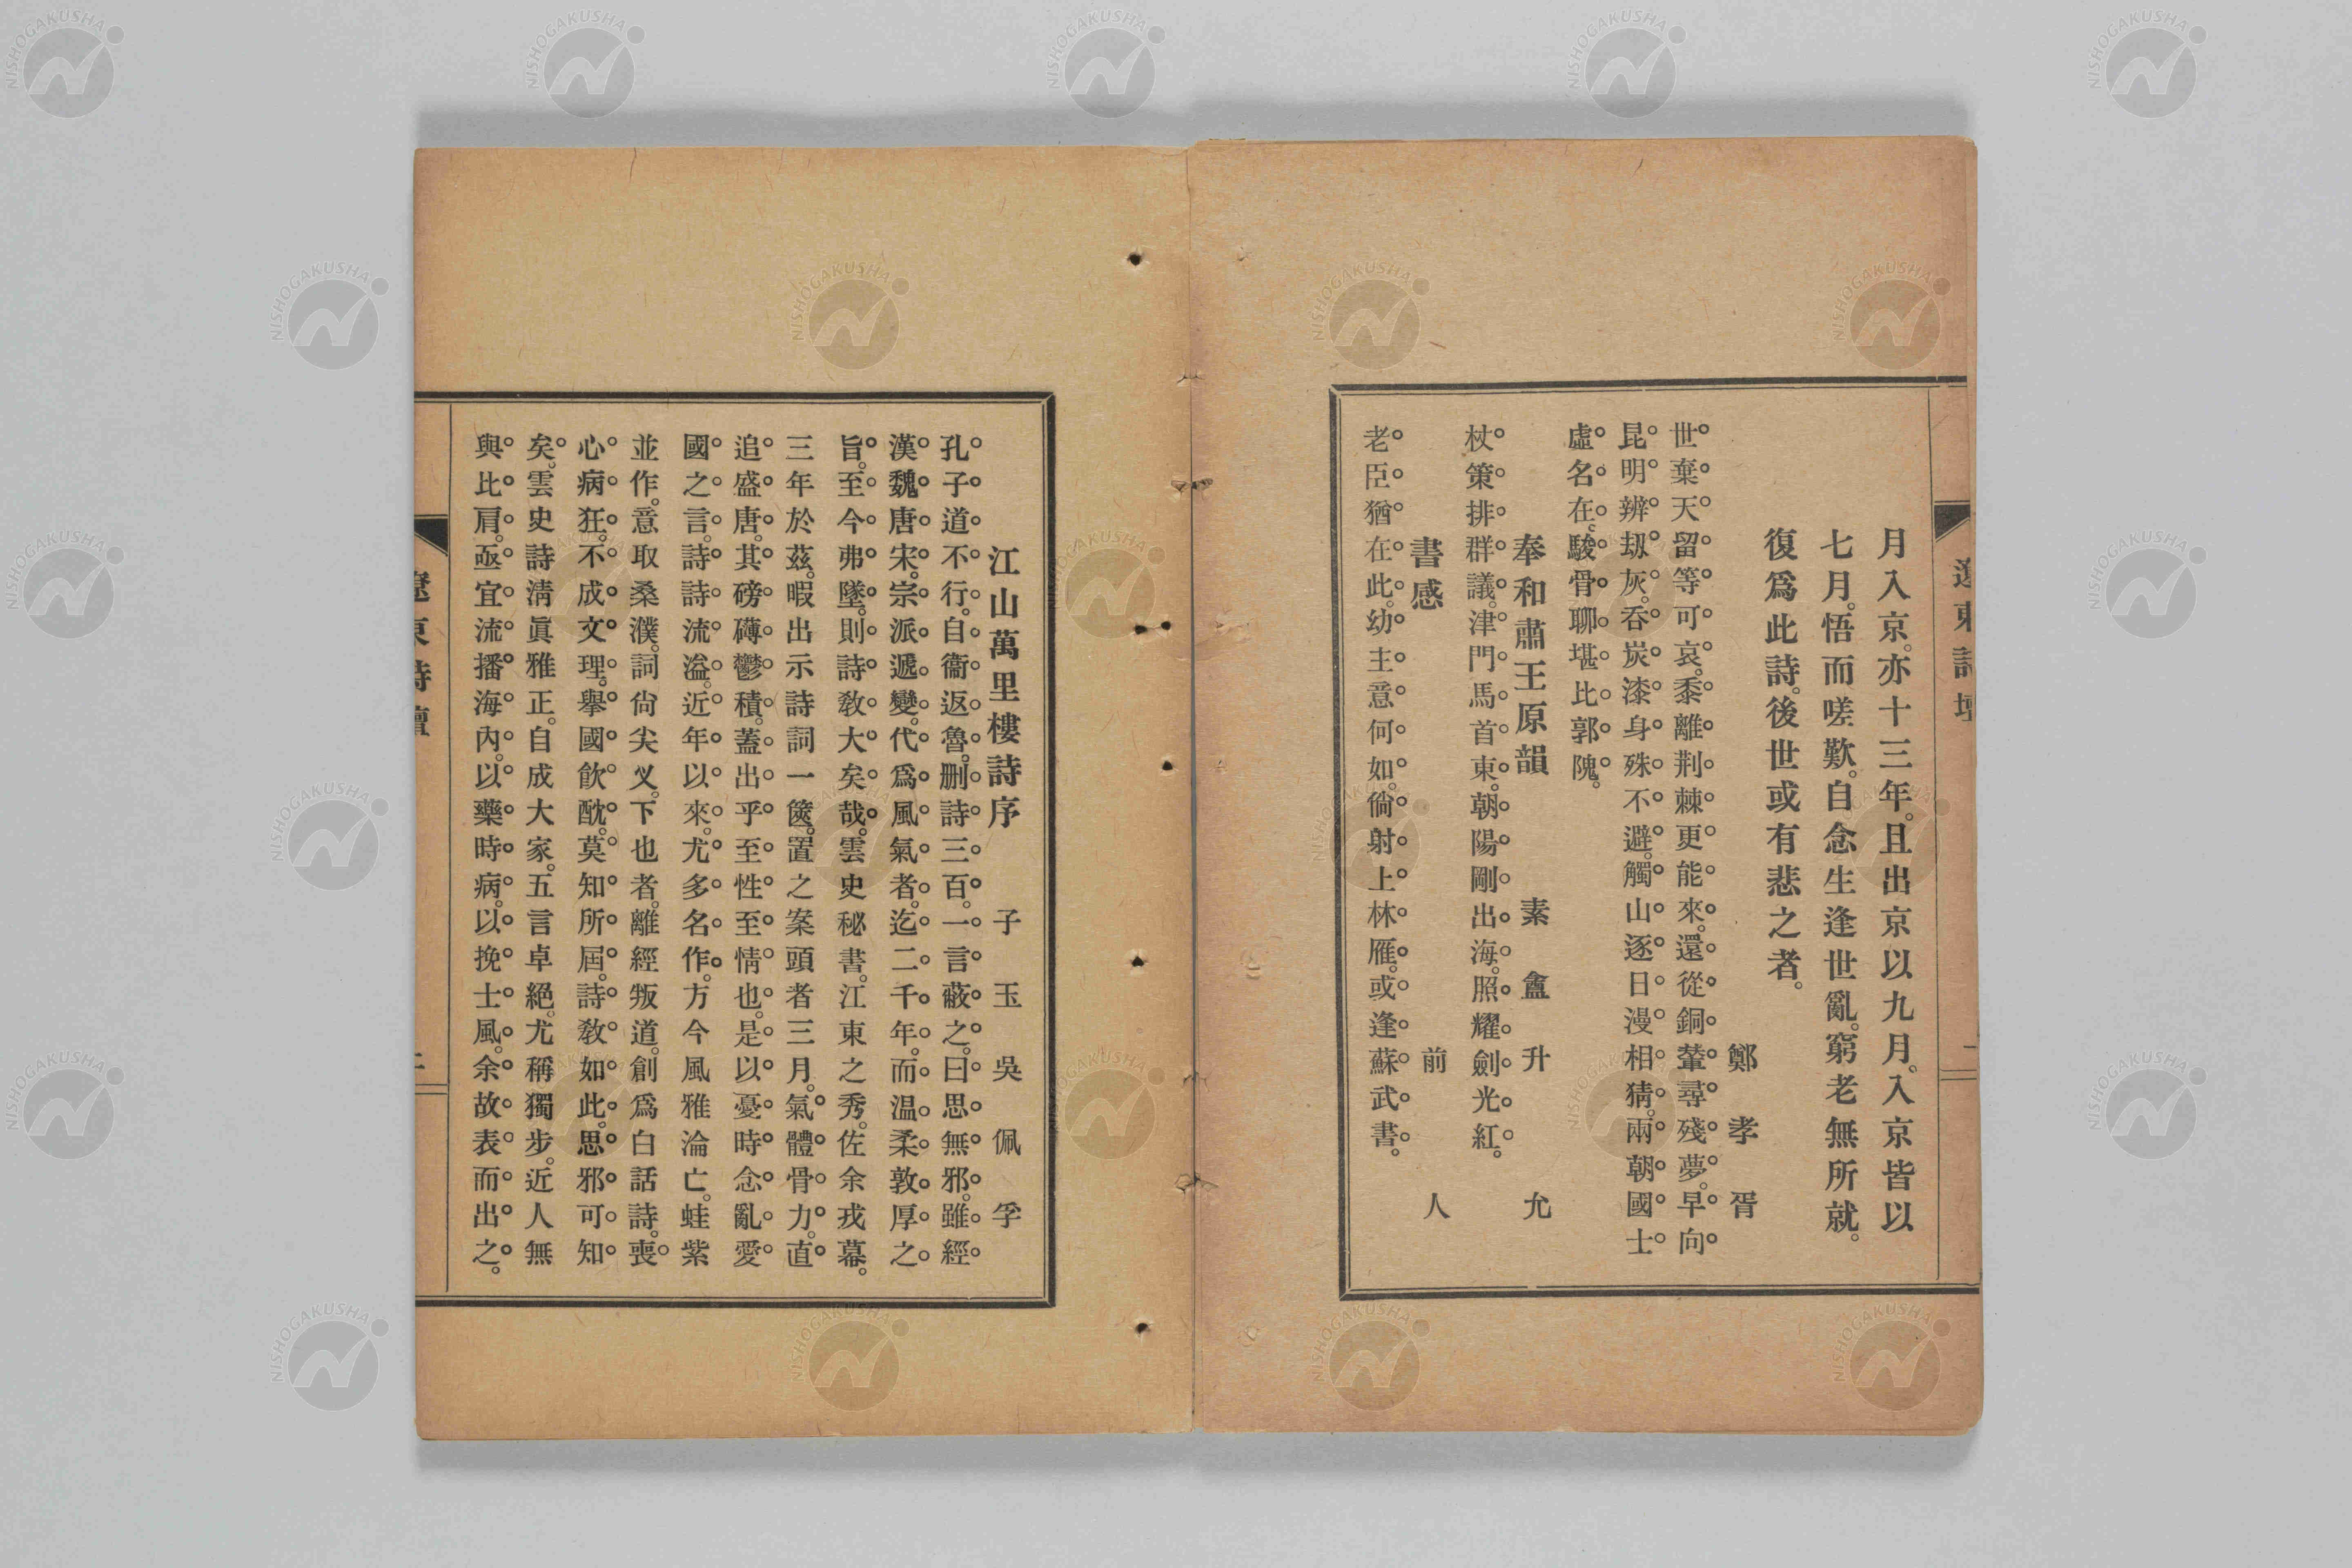 遼東詩壇
二
月入京。亦十三年。且出京以九月。入京皆以
七月。悟而嗟歎。自念生逢世亂。窮老無所就。
復爲此詩。後世或有悲之者。
鄭孝胥
世棄天留等可哀。黍離荆棘更能來。還從銅輦尋殘夢。早向
昆明辨劫灰。吞炭漆身殊不避。觸山逐日漫相猜。兩朝國士
虛名在。駿骨聊堪比郭隗。
奉和肅王原韻 素盦升允
杖策排群議。津門馬首東。朝陽剛出海。照耀劍光紅。
書感 前人
老臣猶在此。幼主意何如。倘射上林雁。或逢蘇武書。
江山萬里樓詩序 子玉吳佩孚
孔子道不行。自衞返魯。刪詩三百。一言蔽之。曰思無邪。雖經
漢魏唐宋。宗派遞變。代爲風氣者。迄二千年。而温柔敦厚之
旨。至今弗墜。則詩敎大矣哉。雲史秘書。江東之秀。佐余戎幕。
三年於茲。暇出示詩詞一篋。置之案頭者三月。氣體骨力。直
追盛唐。其磅礴鬱積。蓋出乎至性至情也。是以憂時念亂。愛
國之言。詩詩流溢。近年以來。尤多名作。方今風雅淪亡。蛙紫
並作。意取桑濮。詞尙尖义。下也者。離經叛道。創爲白話詩。喪
心病狂。不成文理。舉國飮酖。莫知所屆。詩敎如此。思邪可知
矣。雲史詩淸眞雅正。自成大家。五言卓絕。尤稱獨步。近人無
與比肩。亟宜流播海內。以藥時病。以挽士風。余故表而出之。
遼東詩壇
NISHOGAKUSHA